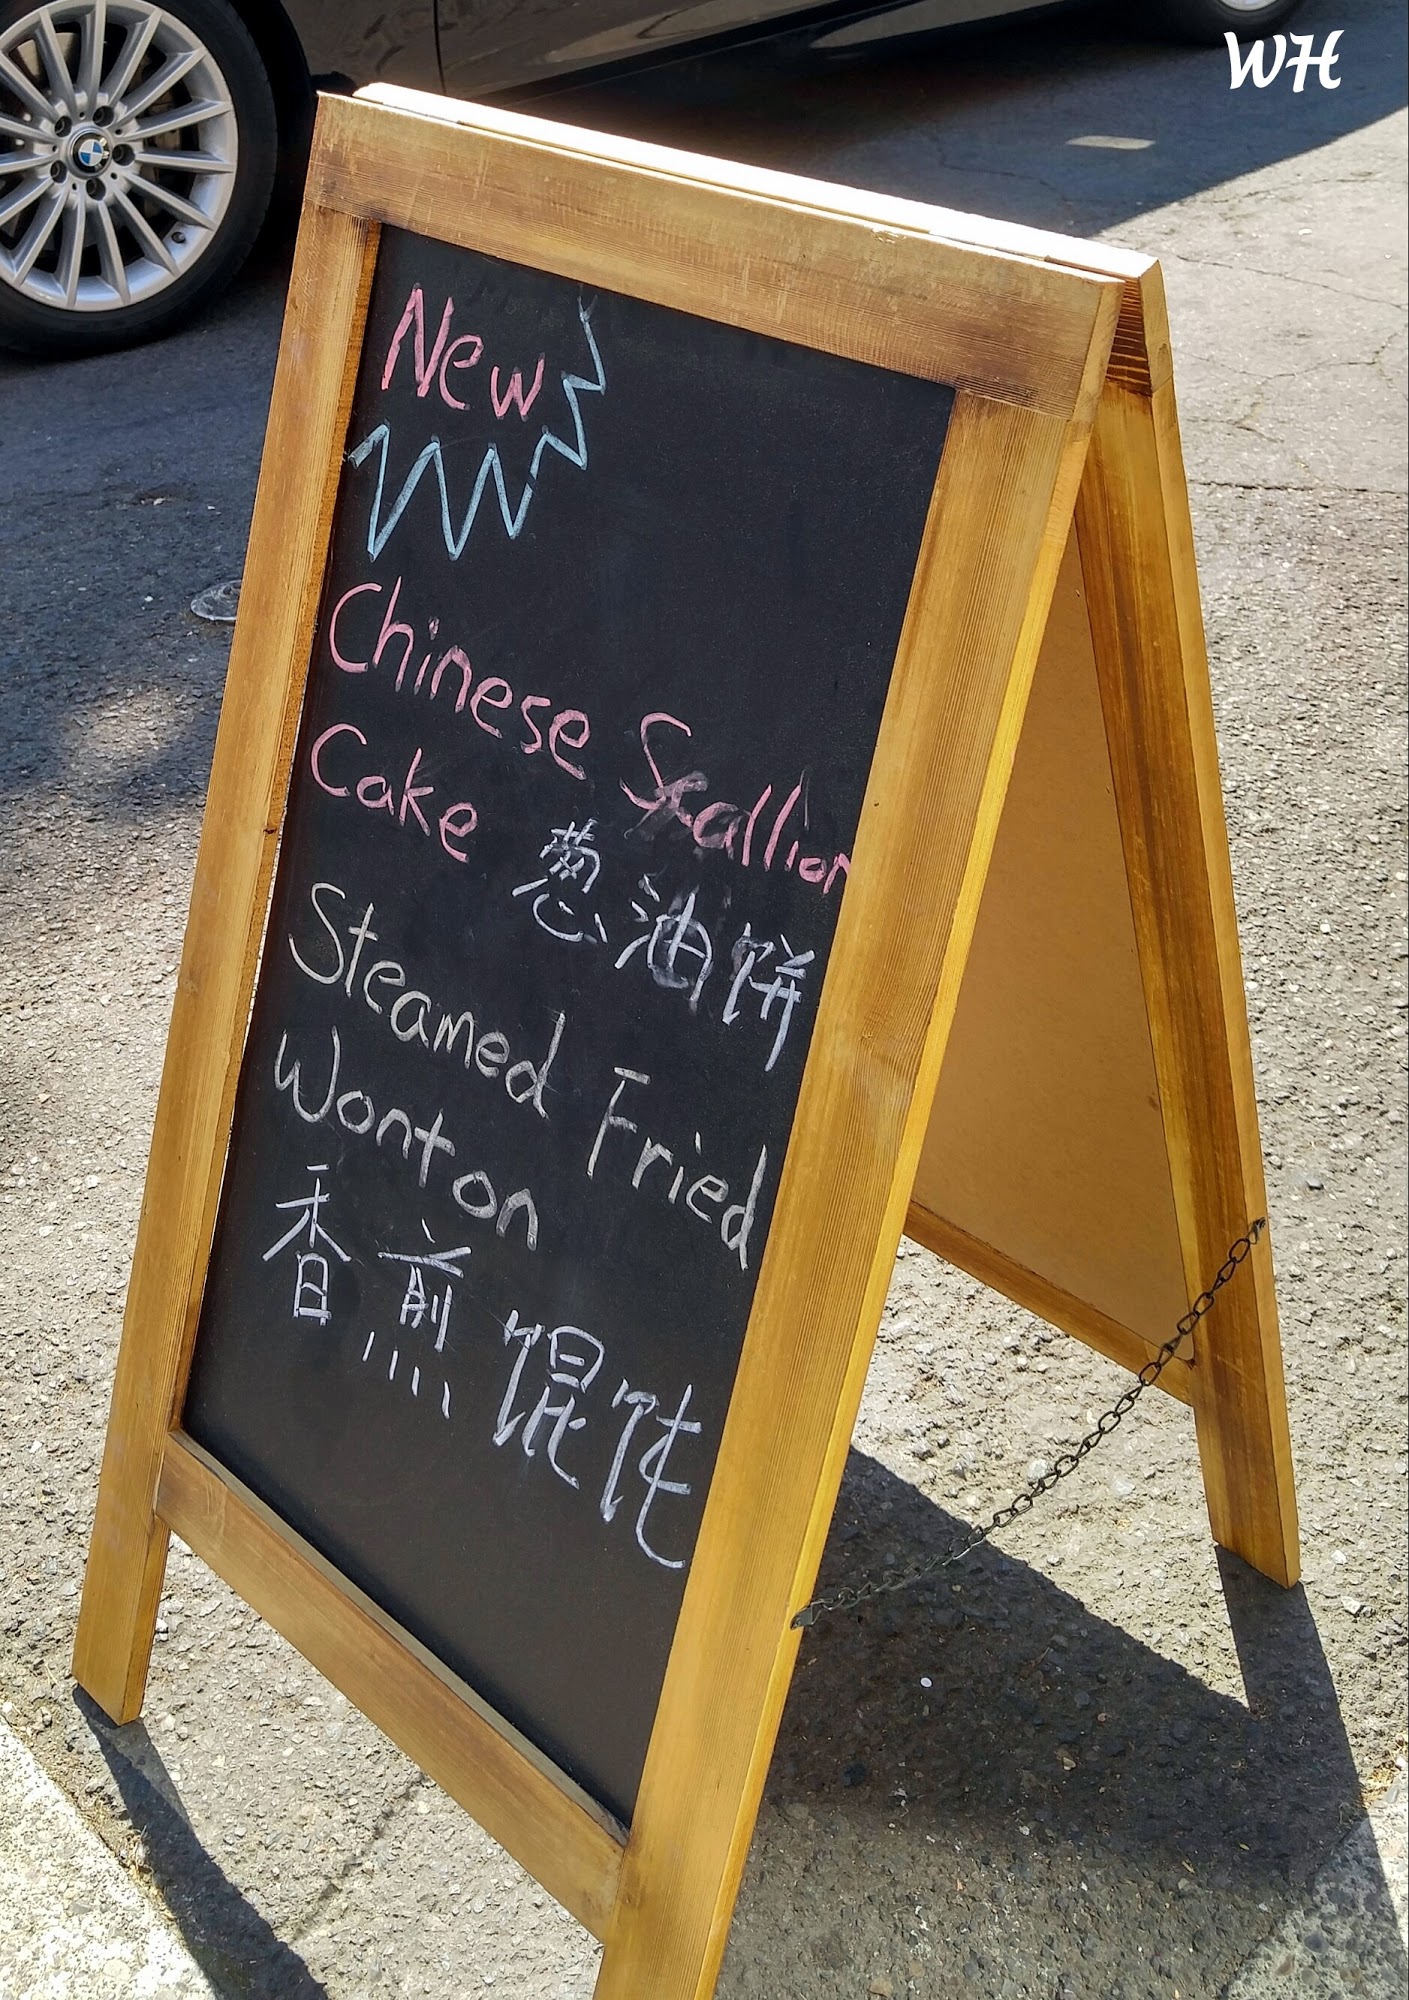 WH
New
Chinese Scallion
Cake 葱油饼
Steamed Fried
Wonton
香煎馄饨